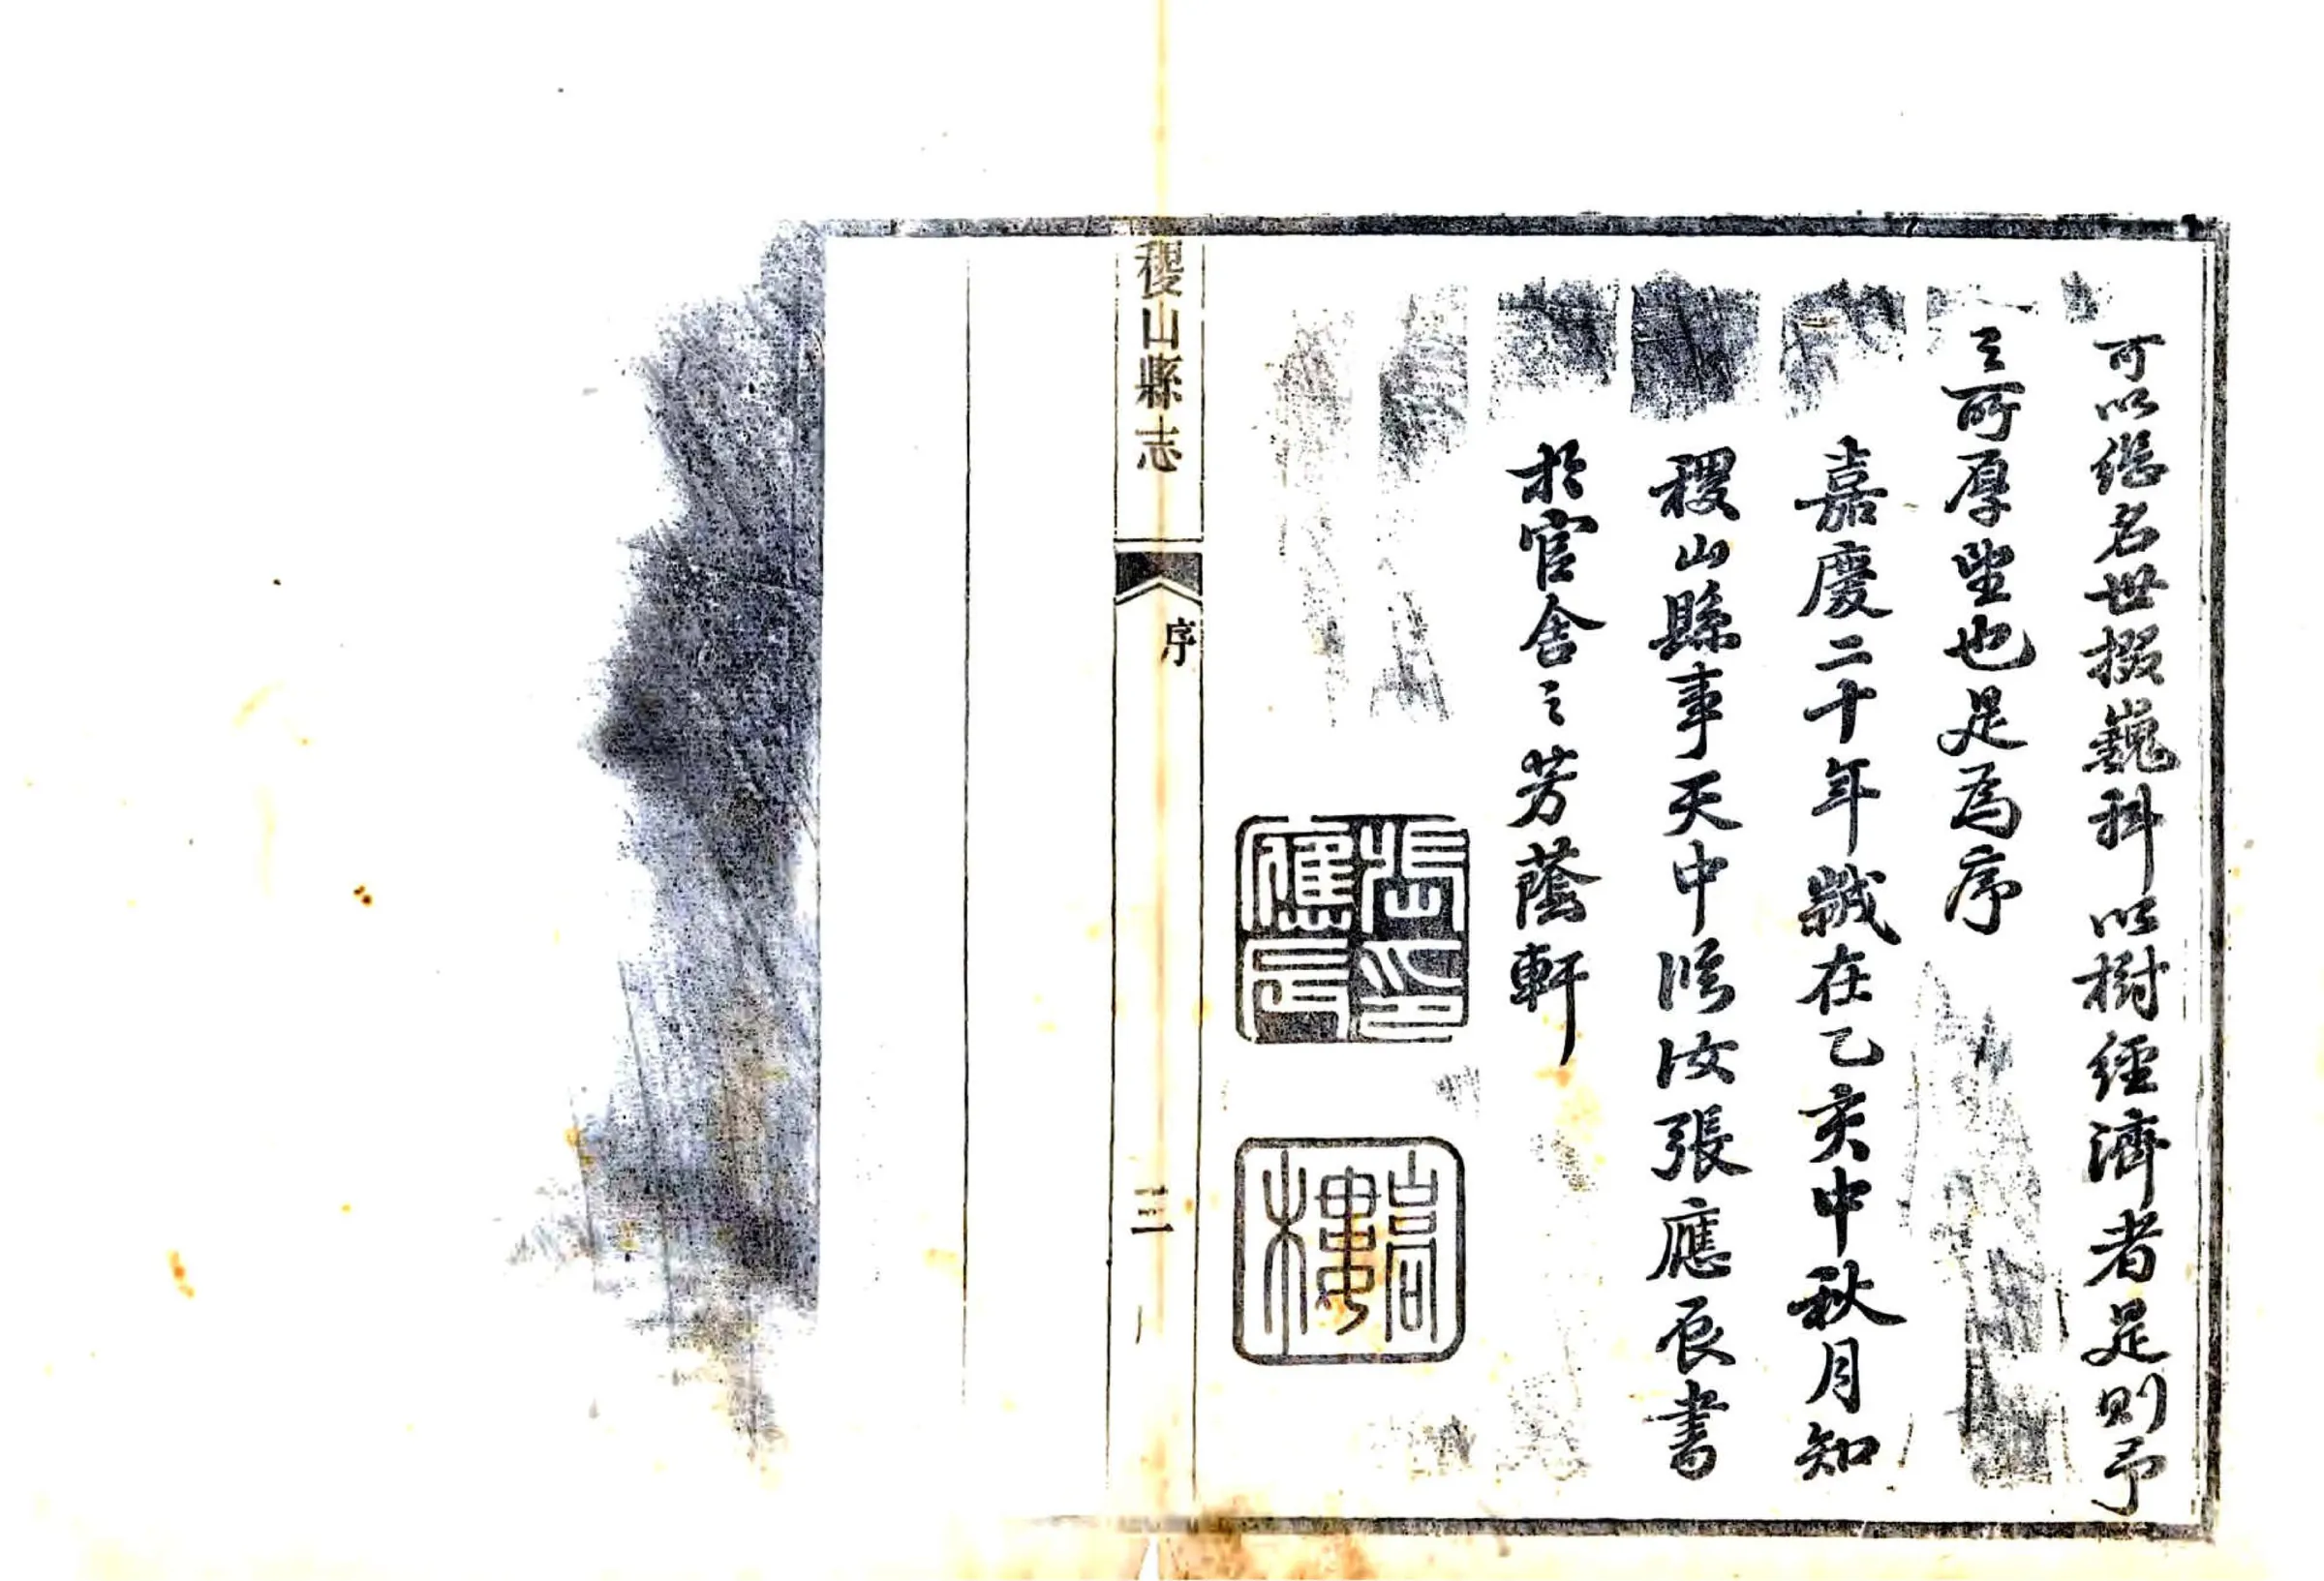 可以繼名世掇巍科以樹經濟者是則予
之所厚望也是為序
嘉慶二十年歲在乙亥中秋月知
稷山縣事天中後汝張應辰書
於官舍之芳蔭軒
張印應辰
嵩樓
稷山縣志
序
三